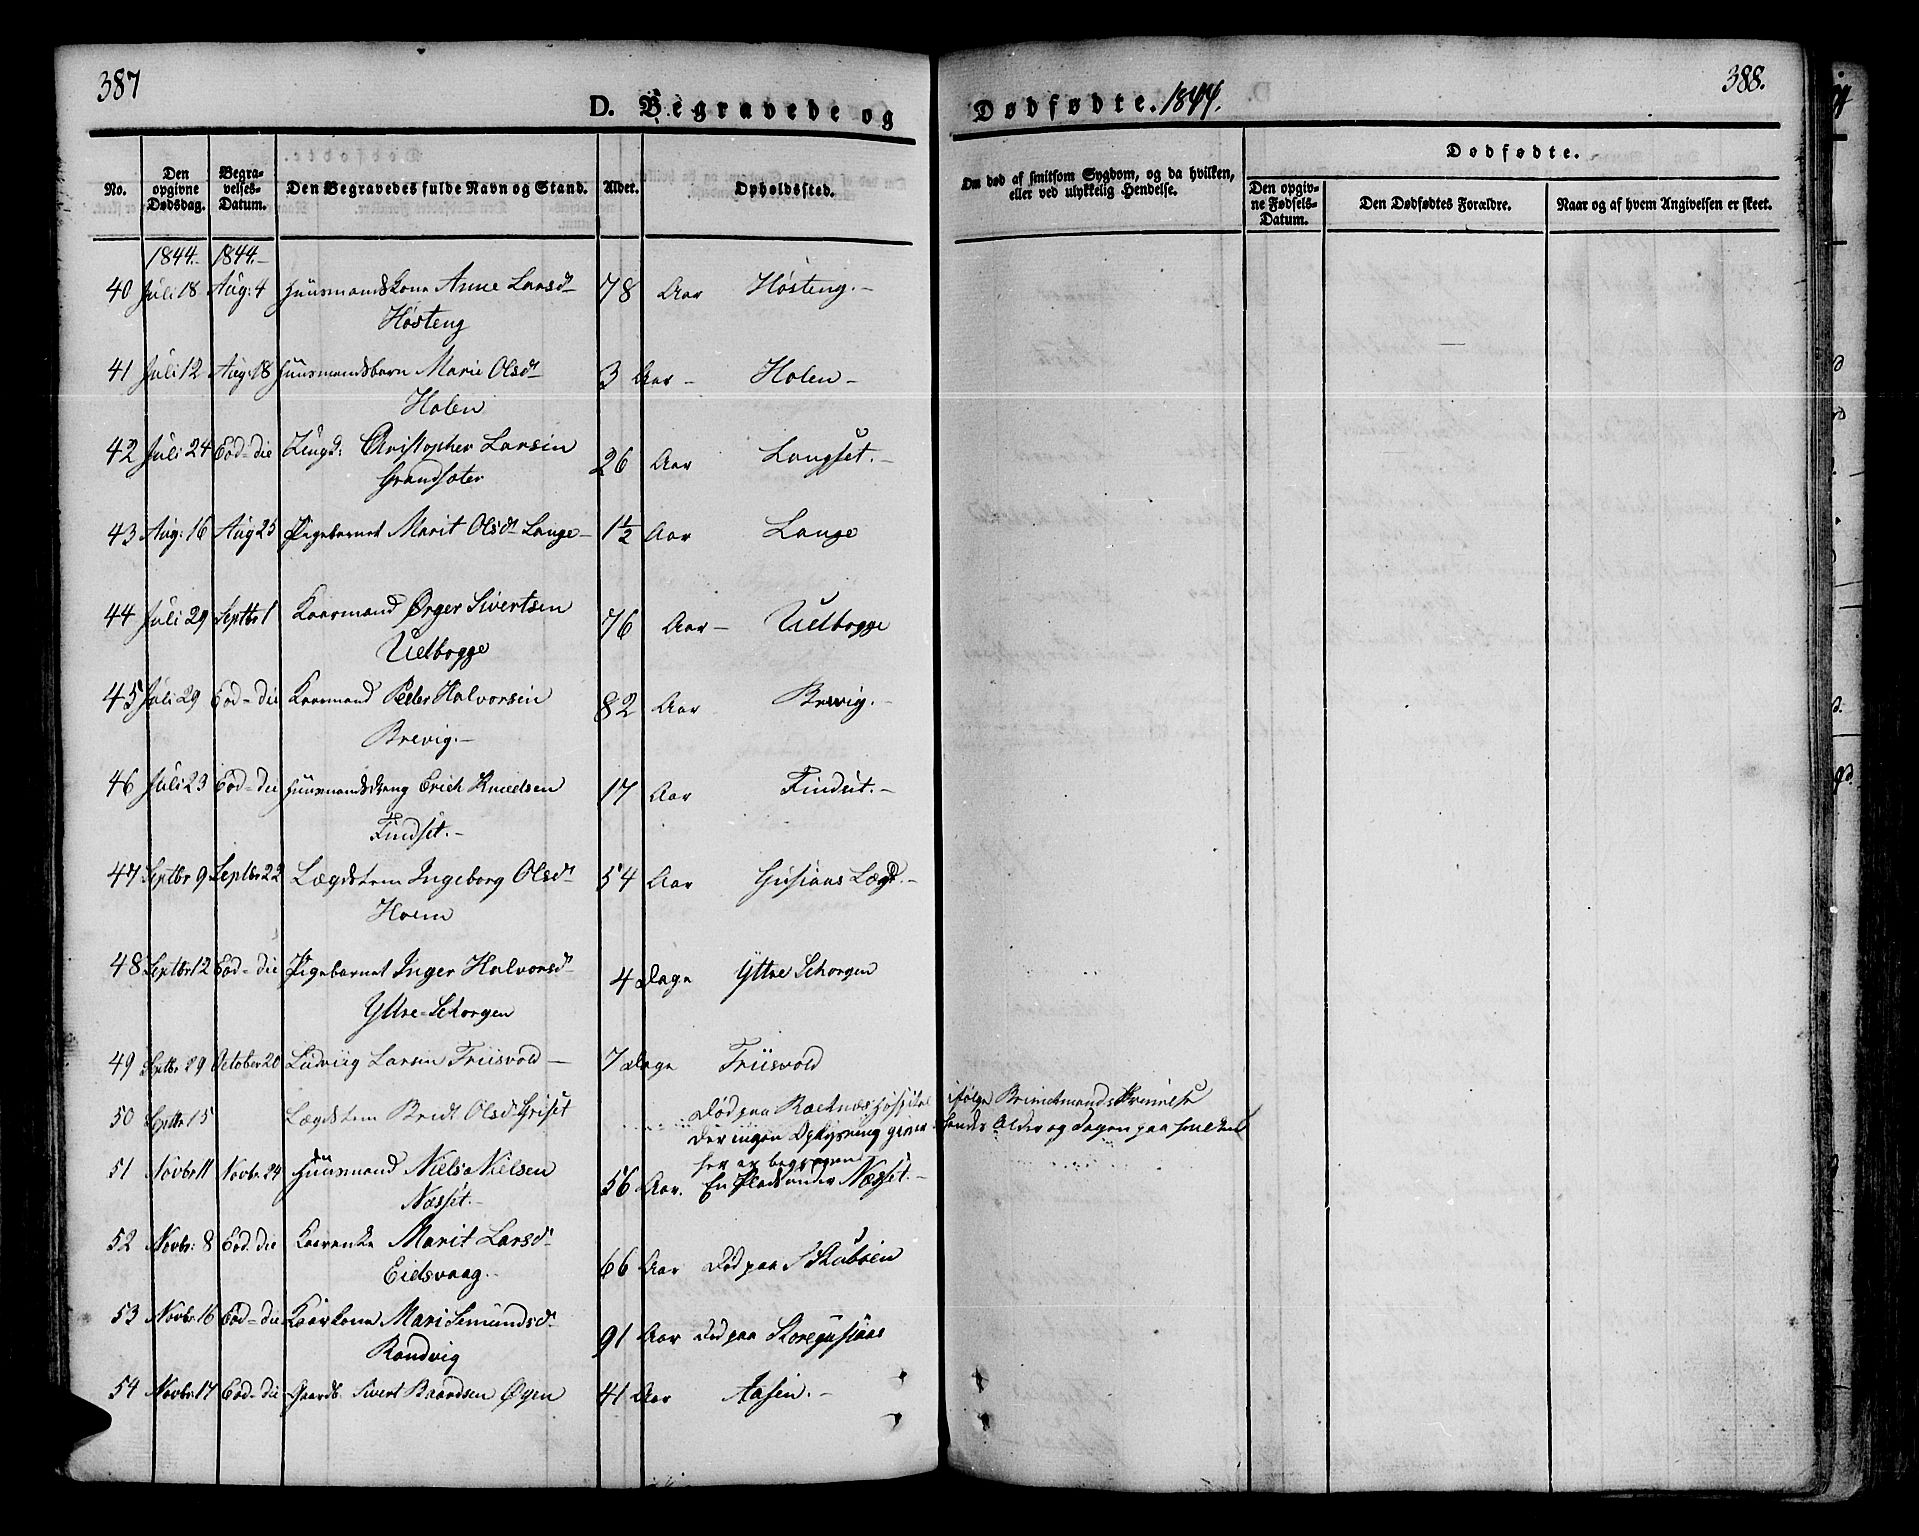 387
388.
D. Begravede og Dødfødte. 1844.
No.
Den opgivne Dødsdag.
Begravelses-Datum.
Den Begravedes fulde Navn og Stand.
Alder.
Opholdssted.
Om død af smitsom Sygdom, og da hvilken, eller ved ulykkelig Hendelse.
Dødfødte.
Den opgivne Fødsels-Datum.
Den Dødfødtes Forældre.
Naar og af hvem Angivelsen er skeet.
1844.- 1844.-
40 Juli 18 Aug: 4 Huusmandskone Anne Larsdr 78 Aar Høsteng.-
Høsteng
41 Juli 12 Aug: 18 Huusmandsbarn Marie Olsdr 3 Aar - Holen -
Holen
42 Juli 24 Eod-die Ungd: Christopher Larsen 26 Aar Langset.-
Grandsæter
43 Aug: 16 Aug 25 Pigebarnet Marit Olsdr Lange- 1½ Aar Lange
44 Juli 29 Septbr 1 Kaarmand Ørger Sivertsen 76 Aar - Uelbogge
Uelbogge
45 Juli 29 Eod-die Kaarmand Peder Halvorsen 82 Aar Brevig.-
Brevig.-
46 Juli 23 Eod-die Huusmandsdreng Erich Knudsen 17 Aar Findset.-
Findset.-
47 Septbr 9 Septbr 22 Lægdslem Ingeborg Olsdr 54 Aar Gusiaas Lægd.-
Holm
48 Septbr 12 Eod-die Pigebarnet Inger Halvorsdr 4 Dage Yttre Schorgen
Yttre-Schorgen
49 Septbr 29 October 20 Ludvig Larsen Friisvold - 7 Dage Friisvold
50 Septbr 15 Lægdslem Bridt Olsdr Griset Død paa Racknæs Hospital ifølge Brinchmands Skrivelse
Der ingen Oplysning giver hendes Alder og Dagen paa hvilken
hun er begraven
51 Novbr 11 Novbr. 24 Huusmand Niels Nielsen 56 Aar. En Plads under Næsset.-
Næsset.-
52 Novbr: 8 Eod-die Kaarenke Marit Larsdr 66 Aar Død paa Skubøen
Eidsvaag.-
53 Novbr 16 Eod-die Kaarkone Mari Semundsdr 91 Aar Død paa Storegusiaas
Randvig
54 Novbr 17 Eod-die Gaardb. Sivert Baardsen Øyen 41 Aar Aasen.-